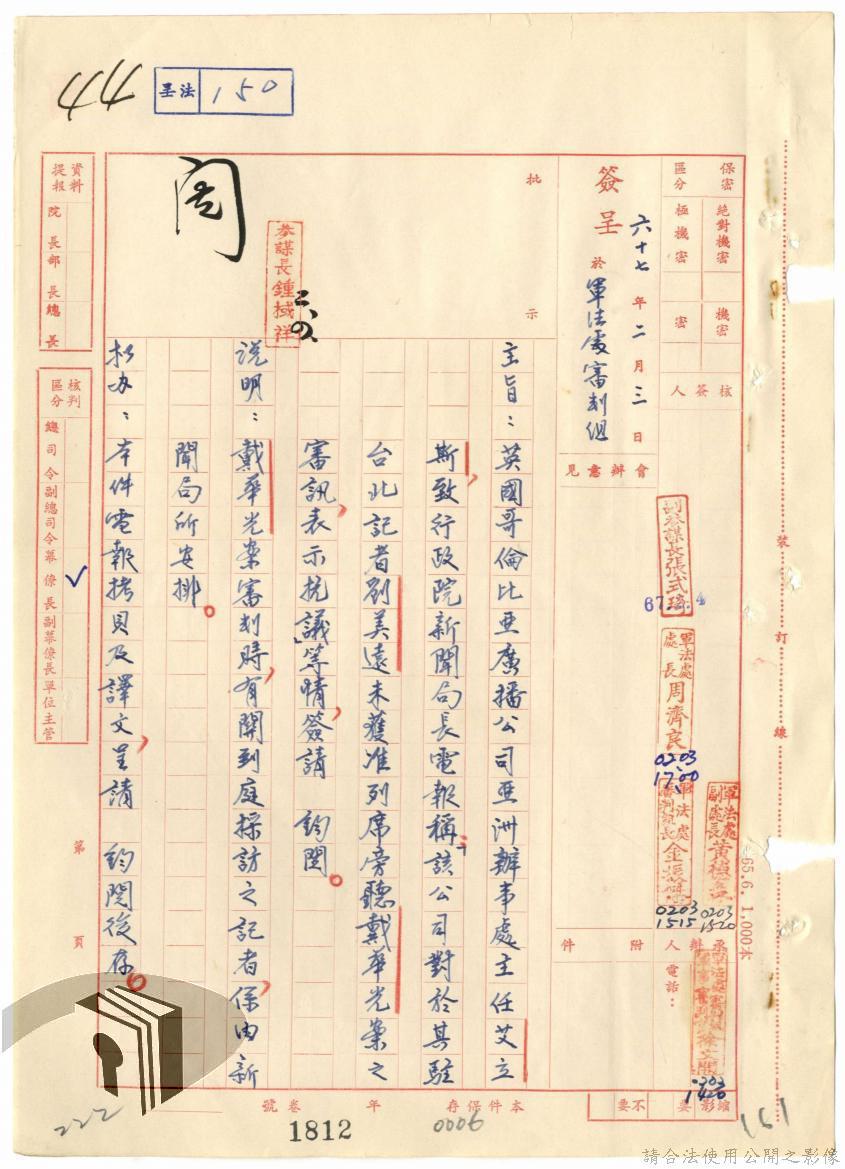 44
呈法 150
保密區分
絕對機密
極機密
機密
密
核簽人
簽呈 六十七年二月三日
於軍法處審判組
會辦意見
批示
閱
參謀長鍾棫祥
二、の、
副參謀長張式琦
67.2.4
軍法處處長周濟良
0203
1700
軍法處副處長黃
0203
1520
軍法處審判組長金
0203
1515
承辦人
電話：
附件
0203
1420
主旨：英國哥倫比亞廣播公司亞洲辦事處主任艾立
斯，致行政院新聞局長電報稱：「該公司對於其駐
台北記者劉美遠未獲准列席旁聽戴華光案之
審訊，表示抗議」等情，簽請　鈞閱。
說明：戴華光案審判時，有關到庭採訪之記者，係由新
聞局所安排。
擬办：本件電報拷貝及譯文，呈請　鈞閱後存。
資料提報
院長
部長
總長
核判區分
總司令
副總司令
幕僚長
副幕僚長
單位主管
✓
第　頁
裝訂線
65.6. 1,000本
縮影
要
不要
本件保存　年　卷　號
0006
1812
222
161
請合法使用公開之影像